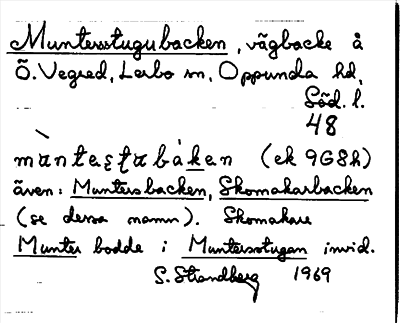 Muntersstugubacken, vägbacke å
Ö. Vegred, Lerbo sn, Oppunda hd,
Söd. l.
48
(ek 9G8h)
även: Muntersbacken, Skomakarbacken
(se dessa namn). Skomakare
Munter bodde i Muntersstugan invid.
S. Strandberg 1969